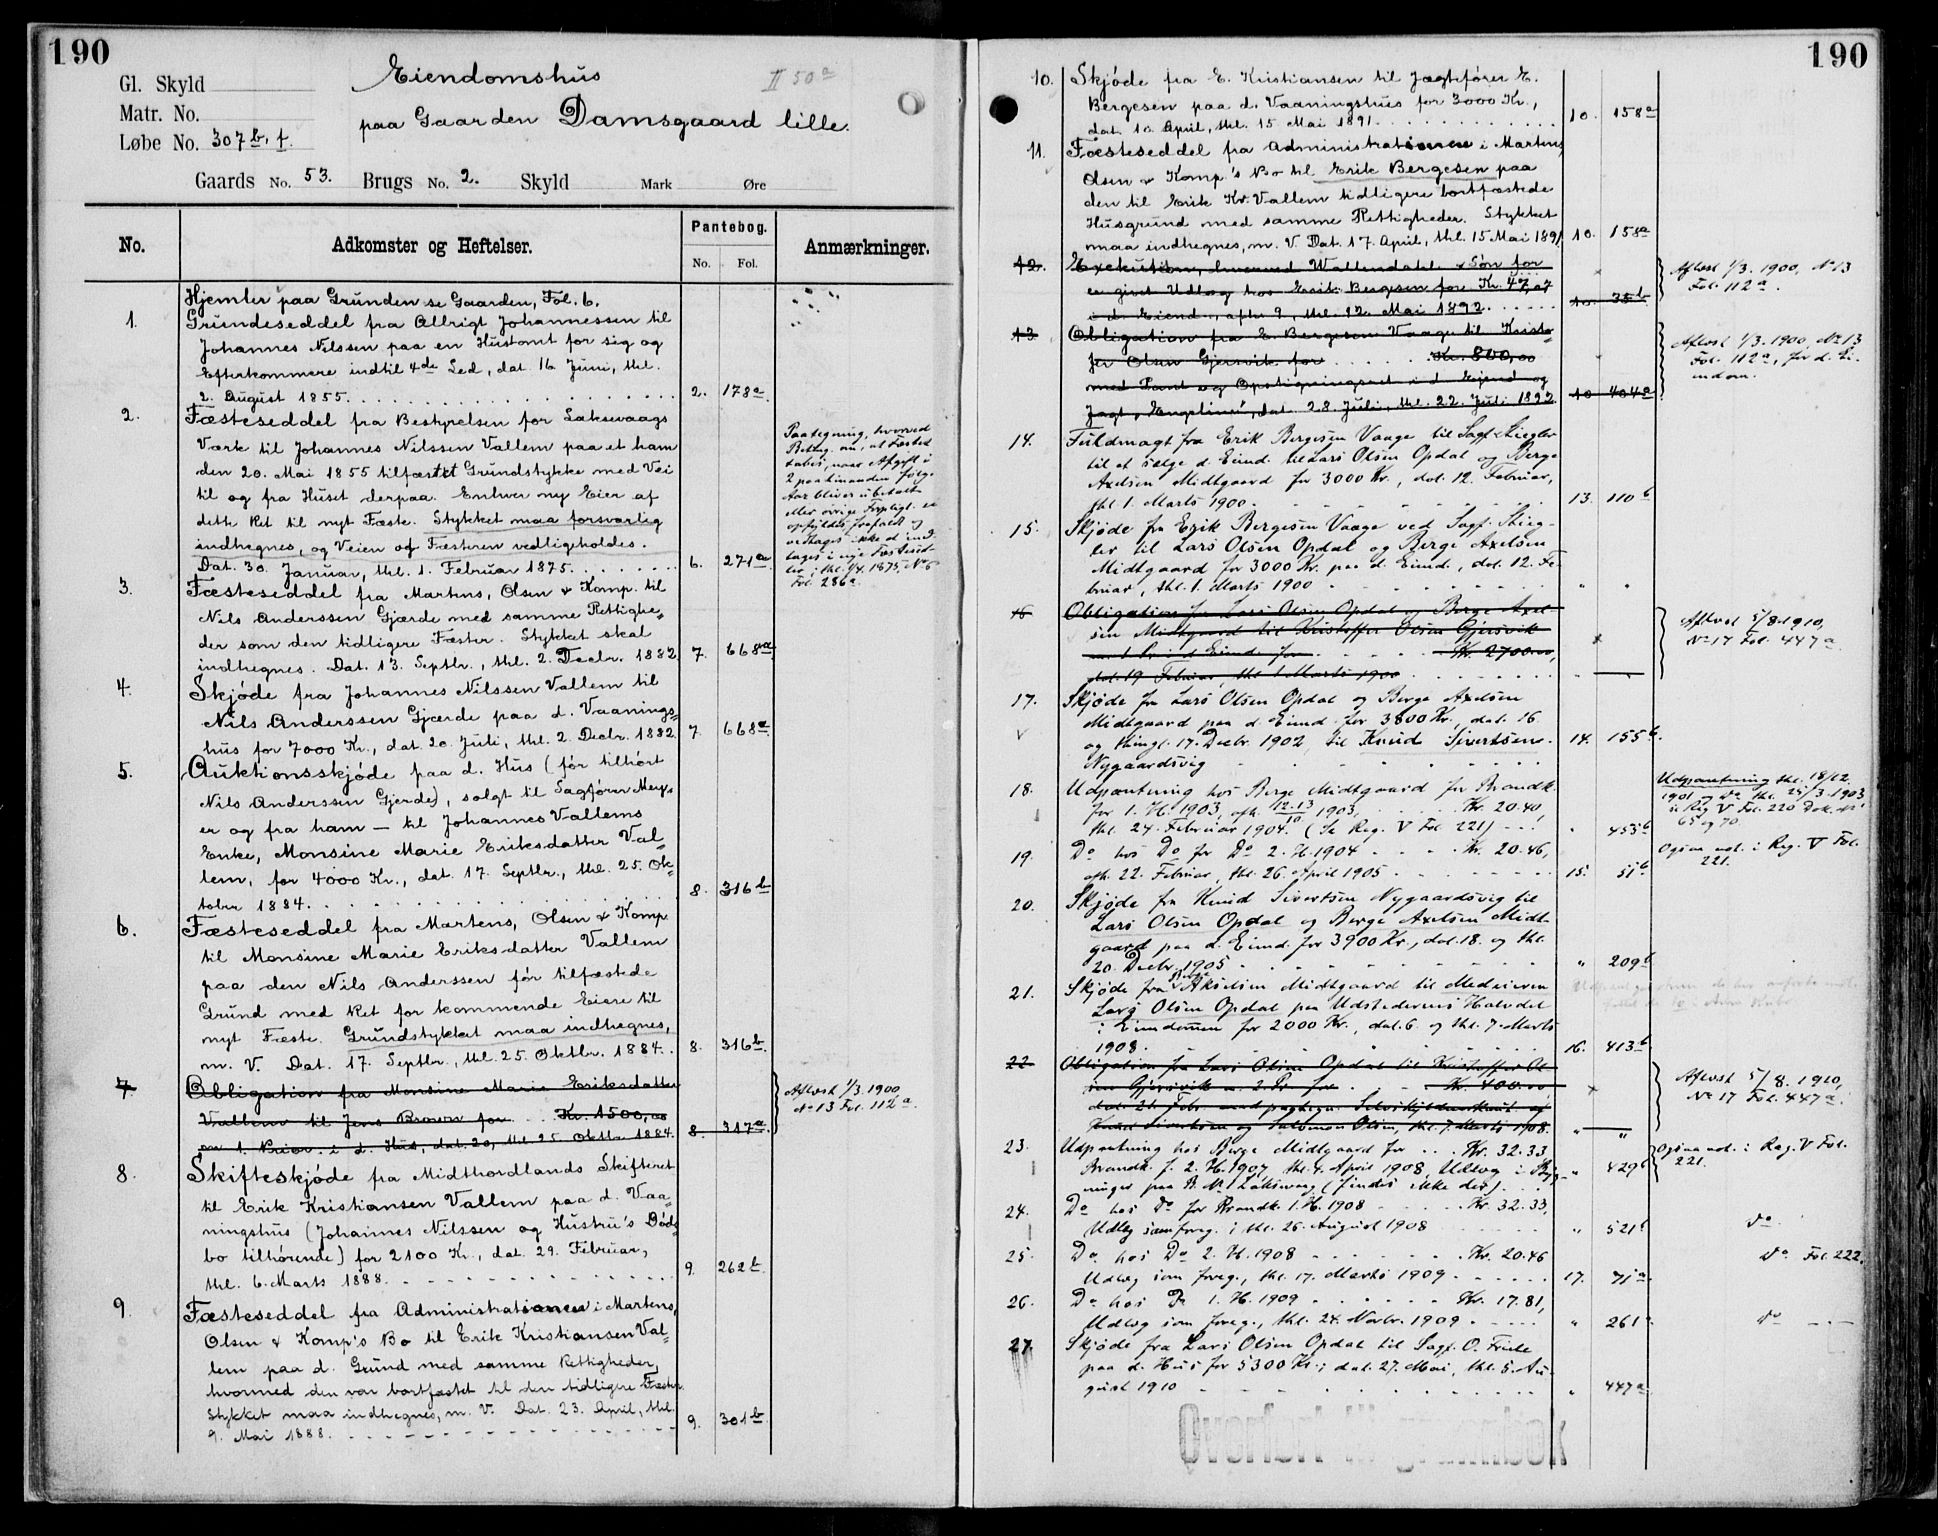 190
Gl. Skyld
Matr. No.
Løbe No. 307 b, f.
Eiendomshus
II 50 a
paa Gaarden Damsgaard lille.
Gaards No. 53. Brugs No. 2. Skyld Mark Øre
No. Adkomster og Heftelser. Pantebog. Anmærkninger.
No. Fol.
Hjemler paa Grunden se Gaarden, Fol. 6.
1. Grundeseddel fra Albrigt Johannessen til
Johannes Nilssen paa en Hustomt for sig og
Efterkommere indtil 4de Led, dat. 16. Juni, thl.
2. August 1855. 2. 178a
2. Fæsteseddel fra Bestyrelsen for Laksevaags
Værk til Johannes Nilssen Vallem paa et ham
den 20. Mai 1855 tilfæstet Grundstykke med Vei
til og fra Huset derpaa. Enhver ny Eier af
dette Ret til nyt Fæste. Stykket maa forsvarlig
indhegnes, og Veien af Fæsteren vedligeholdes.
Dat. 30. Januar, thl. 1. Februar 1875. 6. 271a
Paategning, hvorved
Betg. om, at Fæstet
tabes, naar Afgift i
2 paa hinanden følg.
Aar bliver ubetalt
eller øvrige Forpligt. ei
opfyldes, frafaldt og
vedtages ikke at ind-
tages i nye Fæstesed-
ler; thl. 1/4. 1875, No 6
Fol. 286a.
3. Fæsteseddel fra Martens, Olsen & Komp. til
Nils Anderssen Gjærde med samme Rettighe-
der som den tidligere Fæster. Stykket skal
indhegnes. Dat. 13. Septbr., thl. 2. Decbr. 1882. 7. 668a
4. Skjøde fra Johannes Nilssen Vallem til
Nils Anderssen Gjærde paa d. Vaanings-
hus for 7000 Kr., dat. 20. Juli, thl. 2. Decbr. 1882. 7. 668a
5. Auktionsskjøde paa d. Hus (før tilhørt
Nils Anderssen Gjerde), solgt til Sagfører Mey-
er og fra ham — til Johannes Vallems
Enke, Monsine Marie Eriksdatter Val-
lem, for 4000 Kr., dat. 17. Septbr., thl. 25. Ok-
tober 1884. 8. 316b
6. Fæsteseddel fra Martens, Olsen & Komp.
til Monsine Marie Eriksdatter Vallem
paa den Nils Anderssen før tilfæstede
Grund med Ret for kommende Eiere til
nyt Fæste. Grundstykket maa indhegnes,
m. V. Dat. 17. Septbr., thl. 25. Oktbr. 1884. 8. 316b
7. Obligation fra Monsine Marie Eriksdatter
Vallem til Jens Brown for Kr. 1500,00
m. 1. Prior. i d. Hus, dat. 20, thl. 25. Oktbr. 1884. 8. 317a
Aflæst 1/3. 1900,
No 13 Fol. 112a.
8. Skifteskjøde fra Midthordlands Skifteret
til Erik Kristiansen Vallem paa d. Vaa-
ningshus (Johannes Nilssen og Hustru's Døds-
bo tilhørende) for 2100 Kr., dat. 29. Februar,
thl. 6. Marts 1888. 9. 262b
9. Fæsteseddel fra Administrationen i Martens,
Olsen & Komp's Bo til Erik Kristiansen Val-
lem paa d. Grund med samme Rettigheder,
hvormed den var bortfæstet til den tidligere Fæster.
Stykket maa indhegnes, m. V. Dat. 23. April, thl.
9. Mai 1888. 9. 301b
190
10. Skjøde fra E. Kristiansen til Jagtefører E.
Bergesen paa d. Vaaningshus for 3000 Kr.,
dat. 10. April, thl. 15 Mai 1891. 10. 158a
11. Fæsteseddel fra Administrationen i Martens,
Olsen & Komp.'s Bo til Erik Bergesen paa
den til Erik Kr. Vallem tidligere bortfæstede
Husgrund med samme Rettigheder. Stykket
maa indhegnes, m. V. Dat. 17. April, thl. 15 Mai 1891. 10. 158a
12. Exekution, hvorved Wallendahl & Søn for
er givet Udlæg hos Erik Bergesen for Kr. 47,07
i d. Eiend., afh. 9, thl. 12. Mai 1892. 10. 35b
Aflæst 1/3. 1900, No 13
Fol. 112a.
13. Obligation fra E. Bergesen Vaage til Kristo-
fer Olsen Gjersvik for Kr. 800,00
med Pant og Opsigningsret i d. Ejend og
Jagt "Engeline", dat. 28. Juli, thl. 22. Juli 1893. 10 404a
Aflæst 1/3. 1900, No 13
Fol. 112a, for d. Ei-
endom.
14. Fuldmagt fra Erik Bergesen Vaage til Sagf. Stiegler
til at sælge d. Eiend. til Lars Olsen Opdal og Berge
Axelsen Midtgaard for 3000 Kr., dat. 12. Februar,
thl. 1. Marts 1900. 13. 110b
15. Skjøde fra Erik Bergesen Vaage ved Sagf. Stieg-
ler til Lars Olsen Opdal og Berge Axelsen
Midtgaard for 3000 Kr. paa d. Eiend., dat. 12. Fe-
bruar, thl. 1. Marts 1900 " "
16 Obligation fra Lars Olsen Opdal og Berge Axel-
sen Midtgaard til Kristoffer Olsen Gjersvik
m. 1. Pr. i d. Eiend. for Kr. 2700.00,
dat. 19. Februar, thl. 1. Marts 1900
Aflæst 5/8. 1910,
No 17 Fol. 447a.
17. Skjøde fra Lars Olsen Opdal og Berge Axelsen
Midtgaard paa d. Eiend. for 3800 Kr., dat. 16.
og thingl. 17. Decbr. 1902, til Knud Sivertsen 14. 155b
Nygaardsvig
18. Udpantning hos Berge Midtgaard for Brandk.
for 1. H. 1903, afh. 12.13/10 1903, Kr. 20.40,
thl. 24. Februar 1904. (Se Reg. V Fol 221) " 453b
Udpantning thl. 18/12.
1901 og Do thl. 25/3. 1903
i Reg V Fol. 220 Dok. No
65 og 70
19. Do hos Do for Do 2. H. 1904 Kr. 20.46,
afh. 22. Februar, thl. 26. April 1905 15. 51b
Ogsaa not. i Reg. V Fol.
221.
20. Skjøde fra Knud Sivertsen Nygaardsvig til
Lars Olsen Opdal og Berge Axelsen Midt-
gaard paa d. Eiend. for 3900 Kr., dat. 18. og thl.
20. Decbr. 1905 " 209b
21. Skjøde fra Berge Akselsen Midtgaard til Medeieren
Lars Olsen Opdal paa Udstederens Halvdel
i Eiendommen for 2000 Kr., dat. 6. og thl. 7. Marts
1908. 16. 413b
22. Obligation fra Lars Olsen Opdal til Kristoffer Ol-
sen Gjersvik m. 2. Pr. for Kr. 400.00
dat. 21. Febr. med paategn. Selvskyldnerkaut. af
Knud Sivertsen og Salomon Olsen, thl. 7. Marts 1908. " "
Aflæst 5/8. 1910,
No 17 Fol. 447a.
23. Udpantning hos Berge Midtgaard for Kr. 32.33
Brandk. f. 2. H. 1907, thl. 4. April 1908, Udlæg i Byg- " 429b
ninger paa B. No Laksevaag (findes ikke der)
Ogsaa not. i Reg. V Fol.
221.
24. Do hos Do for Brandk. 1. H. 1908 Kr. 32.33,
Udlæg som foreg.; thl. 26. August 1908 " 521b Do
25. Do hos Do 2. H. 1908 Kr. 20.46
Udlæg som foreg., thl. 17. Marts 1909 17. 71a Do Fol. 222.
26. Do hos Do 1. H. 1909 Kr. 17.81,
Udlæg som foreg., thl. 24. Novbr. 1909. " 261a Do
27. Skjøde fra Lars Olsen Opdal til Sagf. O. Friele
paa d. Hus for 5300 Kr.; dat. 27. Mai, thl. 5. Au-
gust 1910 " 447a
Overført til grunnbok